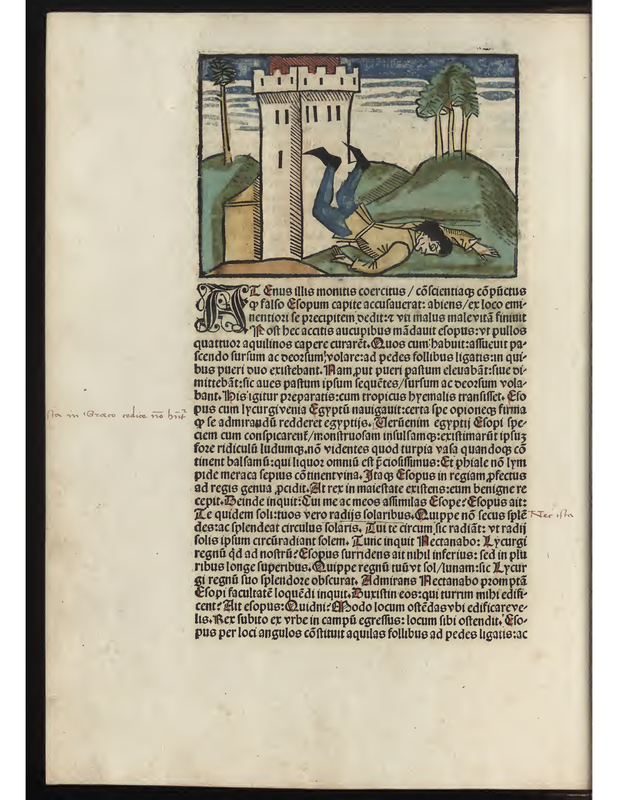 AT Enus illis monitis coercitus / cõscientiaq; cõpũctus
ꝙ falso Esopum capite accusauerat: abiens / ex loco emi-
nentiori se precipitem dedit: ⁊ vt malus malevitã finiuit
Post hec accitis aucupibus mãdauit esopus: vt pullos
quattuor aquilinos capere curarẽt. Quos cum habuit: assueuit pa-
scendo sursum ac deorsum volare: ad pedes follibus ligatis: in qui-
bus pueri duo existebant. Nam, put pueri pastum eleuabãt: siue di-
mittebãt: sic aues pastum ipsum sequẽtes / sursum ac deorsum vola-
bant. His igitur preparatis: cum tropicus hyemalis transisset. Eso
pus cum lycurgi venia Egyptũ nauigauit: certa spe opioneq; firma
ꝙ se admirandũ redderet egyptijs. Verũ enim egyptij Esopi spe-
ciem cum conspicarent̃ / monstruosam insulsamq;: existimarũt ipsuz
fore ridiculũ ludumq;. nõ videntes quod turpia vasa quandoq; cõ
tinent balsamũ: qui liquor omniũ est p̃ciosissimus: Et phiale nõ lym
pide meraca sepius cõtinent vina. Itaq; Esopus in regiam ꝓfectus
ad regis genua ꝓcidit. At rex in maiestate existens: eum benigne re
cepit. Deinde inquit: Cui me ac meos assimilas Esope? Esopus ait:
Te quidem soli: tuos vero radijs solaribus. Quippe nõ secus splẽ
des: ac splendeat circulus solaris. Tui te circum sic radiãt: vt radij
solis ipsum circũradiant solem. Tunc inquit Nectanabo: Lycurgi
regnũ qd ad nostrũ? Esopus surridens ait nihil inferius: sed in plu
ribus longe superius. Quippe regnũ tuũ vt sol / lunam: sic Lycur
gi regnũ suo splendore obscurat. Admirans Nectanabo promptã
Esopi facultatẽ loquẽdi inquit. Duxistin eos: qui turrim mihi edifi-
cent? Ait esopus: Quidni? Modo locum ostẽdas vbi edificareve-
lis. Rex subito ex vrbe in campũ egressus: locum sibi ostendit. Eso-
pus per loci angulos cõstituit aquilas follibus ad pedes ligatis: ac
ista in Graeco codice nõ
Nec ista